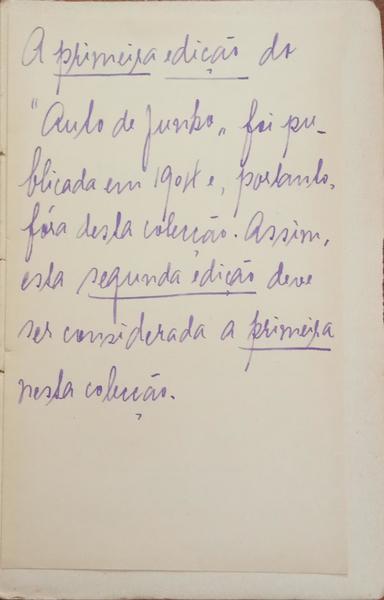 A primeira edição do
"Auto de Junho„ foi pu-
blicada em 1904 e, portanto,
fóra desta colecção. Assim,
esta segunda edição deve
ser considerada a primeira
nesta colecção.